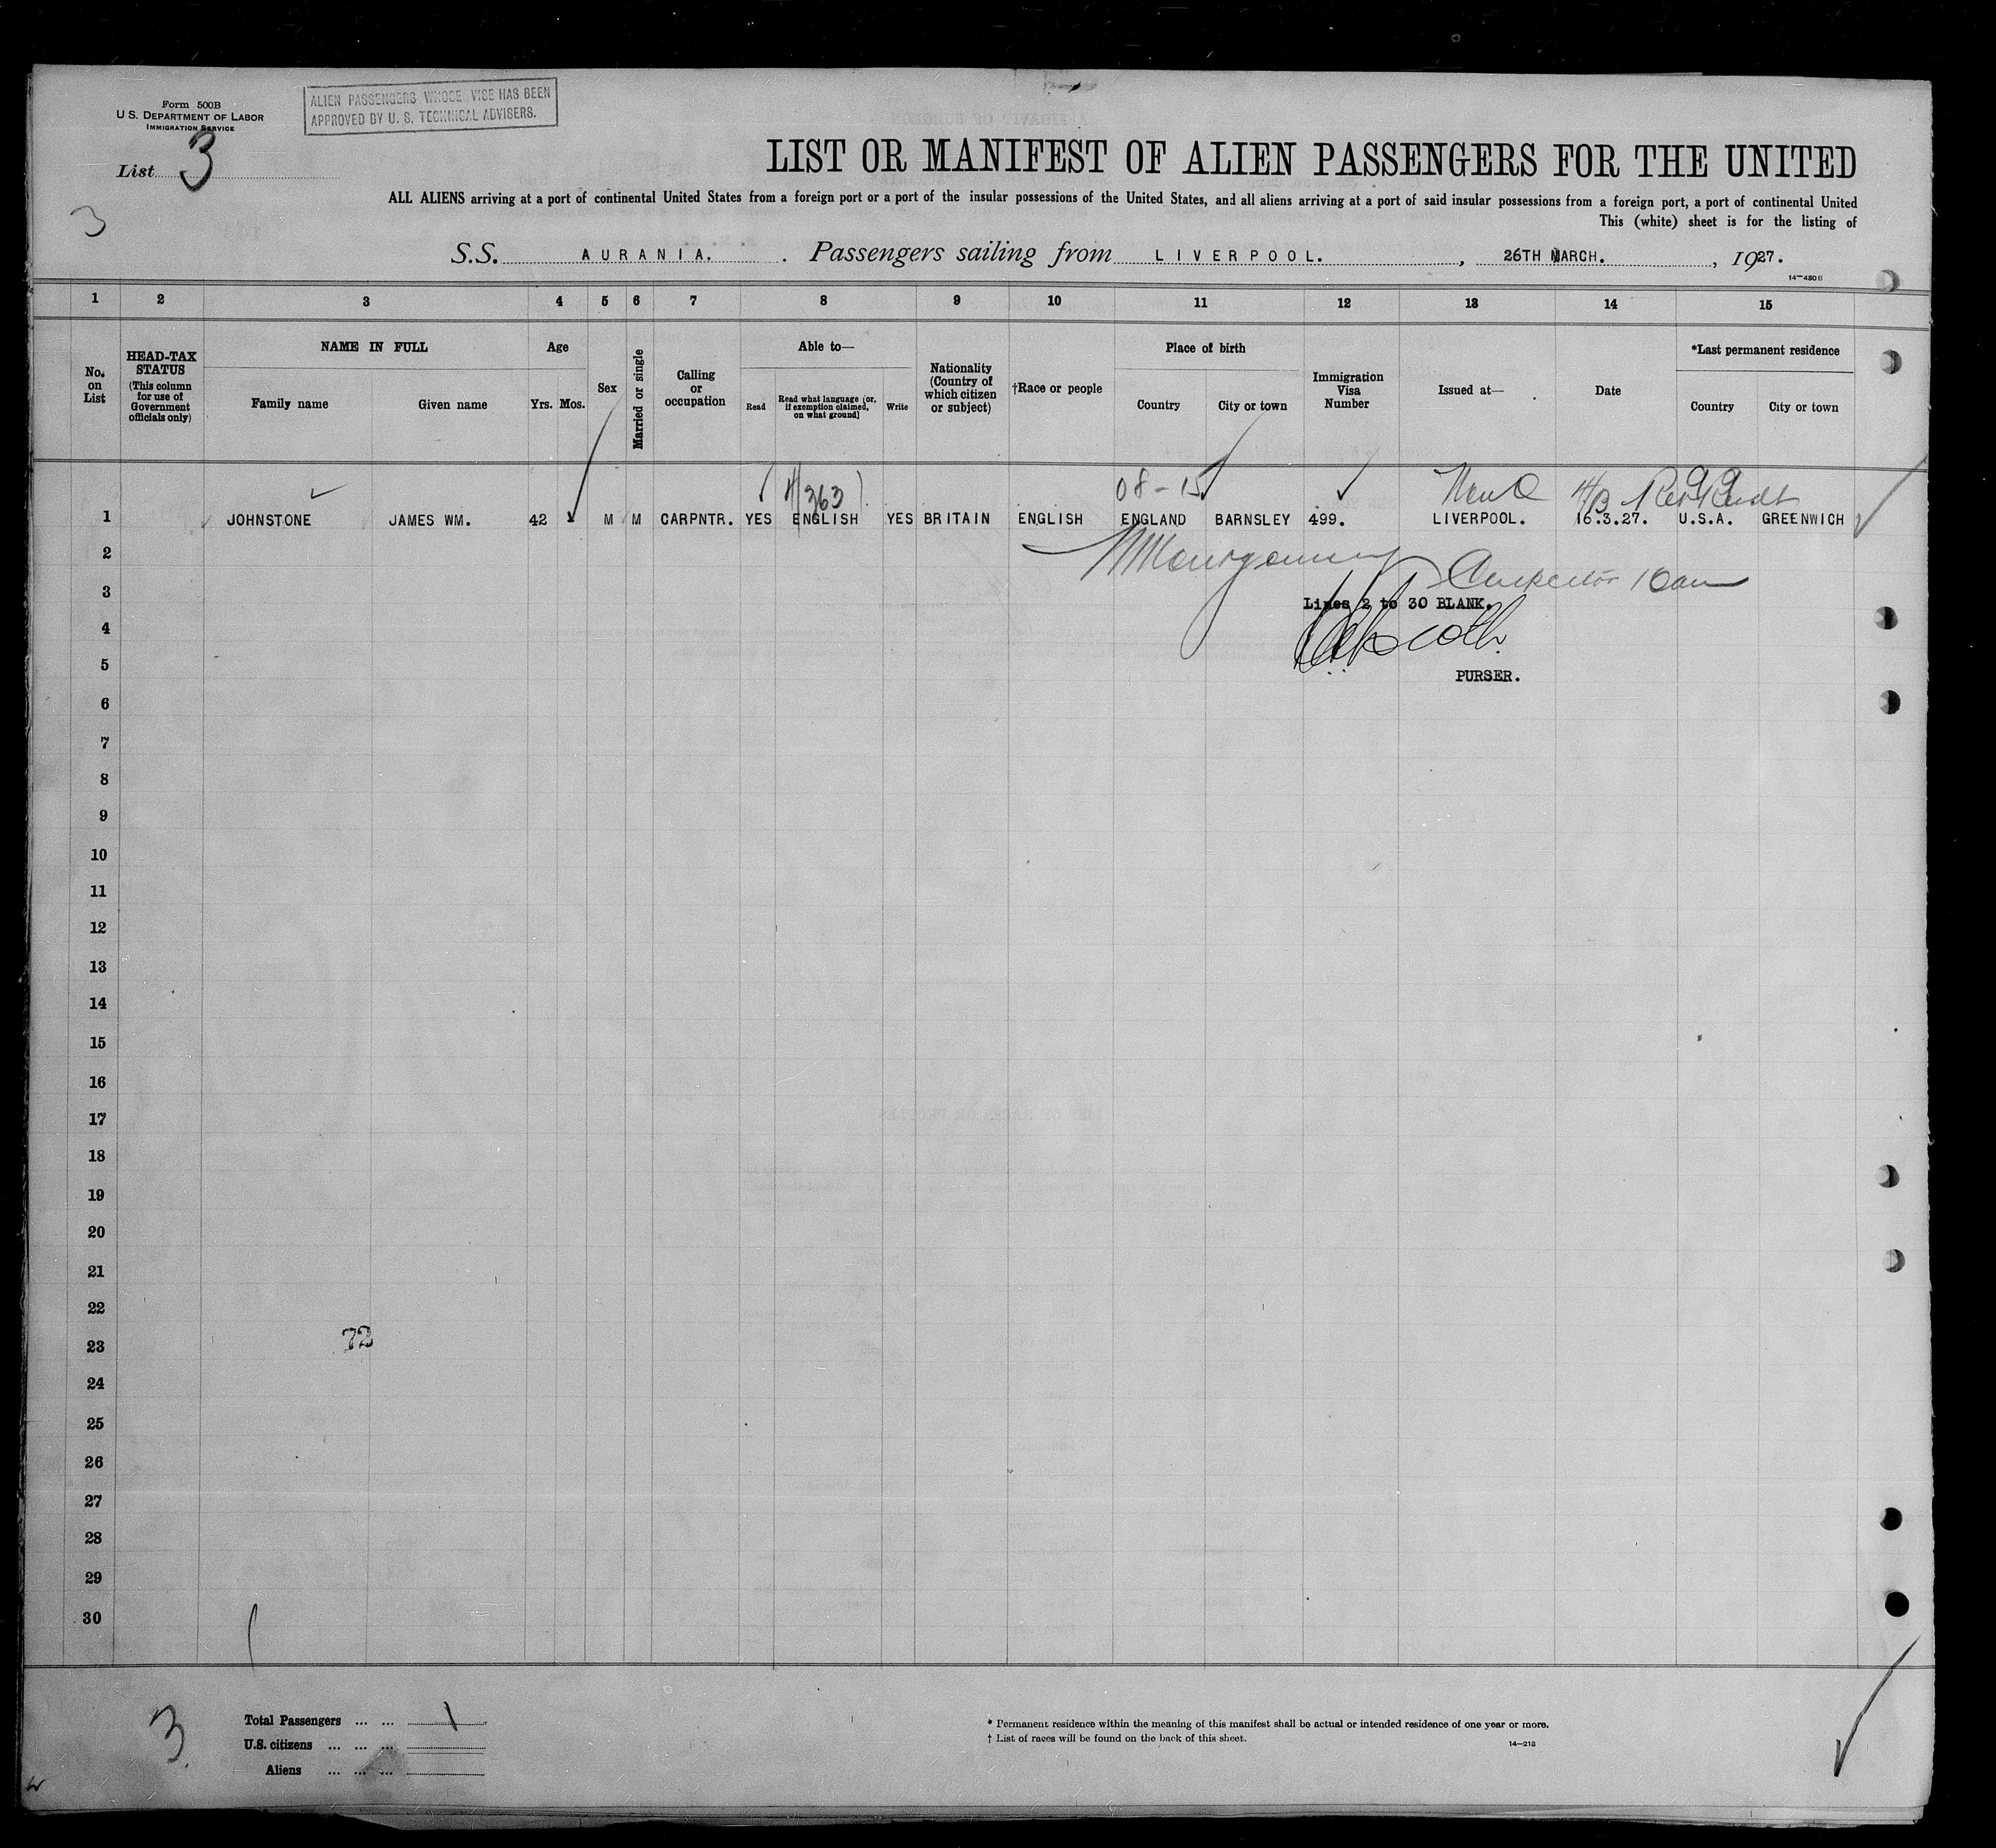 Form 500B
U.S. DEPARTMENT OF LABOR
IMMIGRATION SERVICE
ALIEN PASSENGERS WHOSE VISE HAS BEEN
APPROVED BY U. S. TECHNICAL ADVISERS.
List 3
3
LIST OR MANIFEST OF ALIEN PASSENGERS FOR THE UNITED
ALL ALIENS arriving at a port of continental United States from a foreign port or a port of the insular possessions of the United States, and all aliens arriving at a port of said insular possessions from a foreign port, a port of continental United
This (white) sheet is for the listing of
S.S. AURANIA. Passengers sailing from LIVERPOOL. , 26TH MARCH. , 1927.
14-430B
1 2 3 4 5 6 7 8 9 10 11 12 13 14 15
No. on List
HEAD-TAX STATUS (This column for use of Government officials only)
NAME IN FULL
Family name Given name
Age
Yrs. Mos.
Sex
Married or single
Calling or occupation
Able to—
Read
Read what language [or, if exemption claimed, on what ground]
Write
Nationality (Country of which citizen or subject)
†Race or people
Place of birth
Country City or town
Immigration Visa Number
Issued at—
Date
*Last permanent residence
Country City or town
4/363 08-15
1 JOHNSTONE JAMES WM. 42 M M CARPNTR. YES ENGLISH YES BRITAIN ENGLISH ENGLAND BARNSLEY 499. LIVERPOOL. 16.3.27. U.S.A. GREENWICH
2 Montgomery
3
Lines 2 to 30 BLANK.
4
5
PURSER.
6
7
8
9
10
11
12
13
14
15
16
17
18
19
20
21
22
23
72
24
25
26
27
28
29
30
3
Total Passengers ... ... 1
U.S. citizens ... ... ...
Aliens ... ... ...
* Permanent residence within the meaning of this manifest shall be actual or intended residence of one year or more.
† List of races will be found on the back of this sheet.
14-213